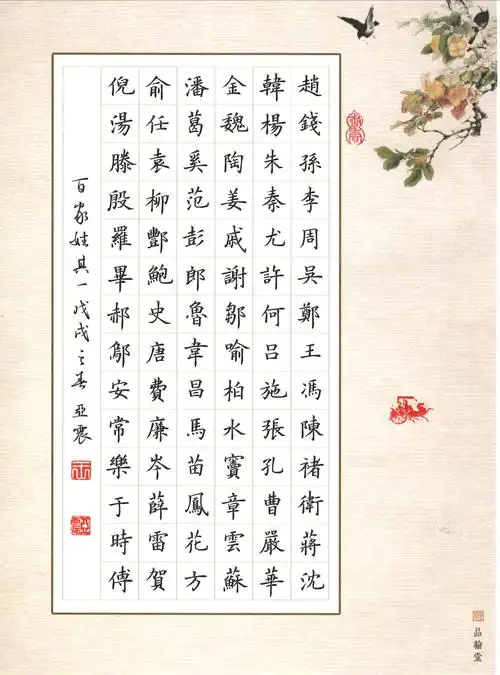 趙錢孫李周吳鄭王馮陳褚衛蔣沈
韓楊朱秦尤許何呂施張孔曹嚴華
金魏陶姜戚謝鄒喻柏水竇章雲蘇
潘葛奚范彭郎魯韋昌馬苗鳳花方
俞任袁柳酆鮑史唐費廉岑薛雷賀
倪湯滕殷羅畢郝鄔安常樂于時傅
百家姓其一戊戌之春 亞震
品翰堂